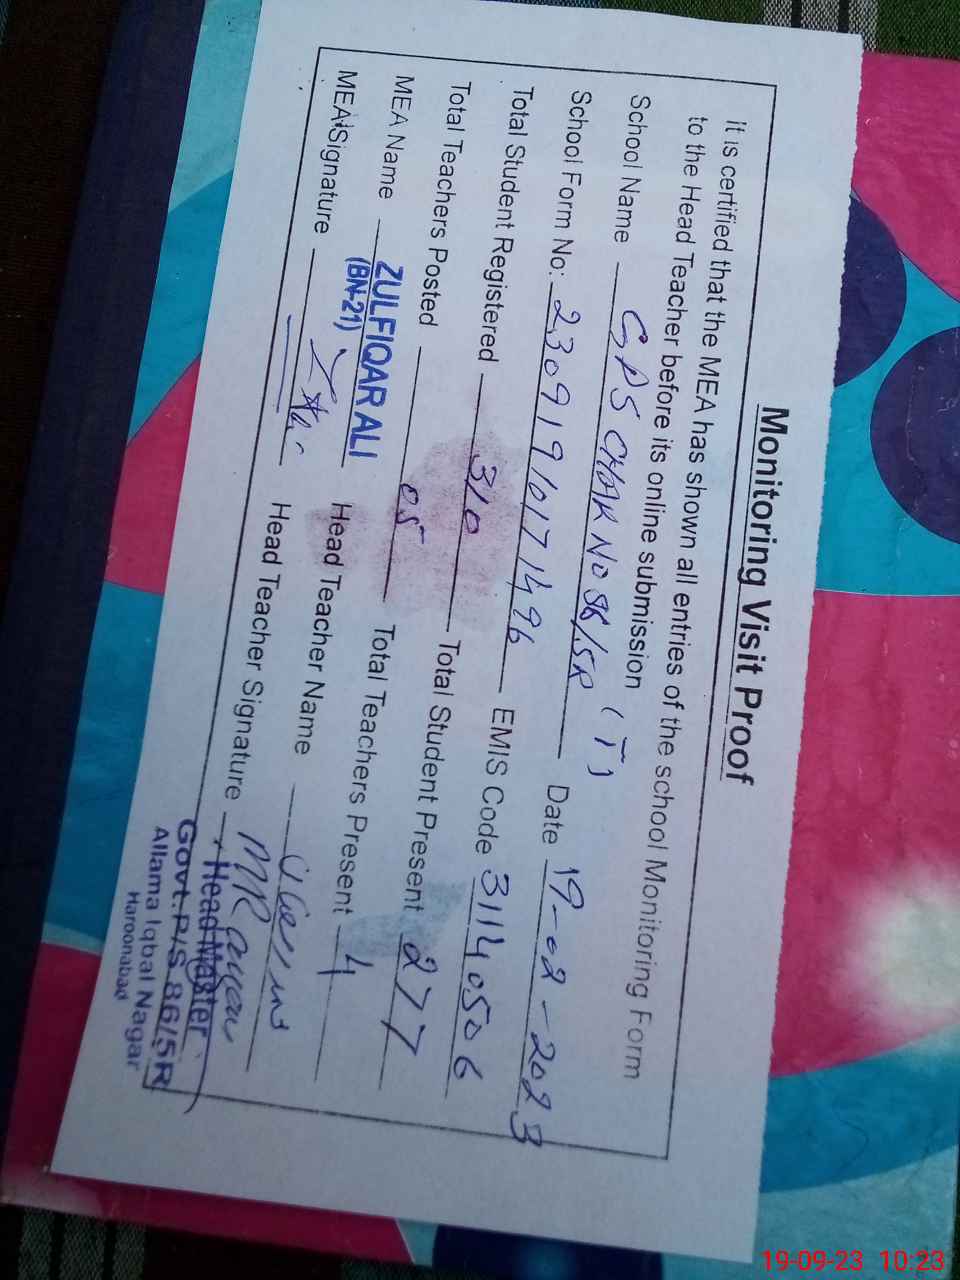 Monitoring Visit Proof
it is certified that the MEA has shown all entries of the school Monitoring Form
to the Head Teacher before its online submission
School Name GPS CHAK NO 86/5R (T)
School Form No: 23091910171496 Date 19-02-2023
Total Student Registered 310 EMIS Code 31140506
Total Teachers Posted 05 Total Student Present 277
MEA Name ZULFIQAR ALI Total Teachers Present 4
(BN-21)
MEA Signature Head Teacher Name
Head Teacher Signature
Head Master
Govt. P/S 86/5R
Allama Iqbal Nagar
Haroonabad
19-09-23 10:23